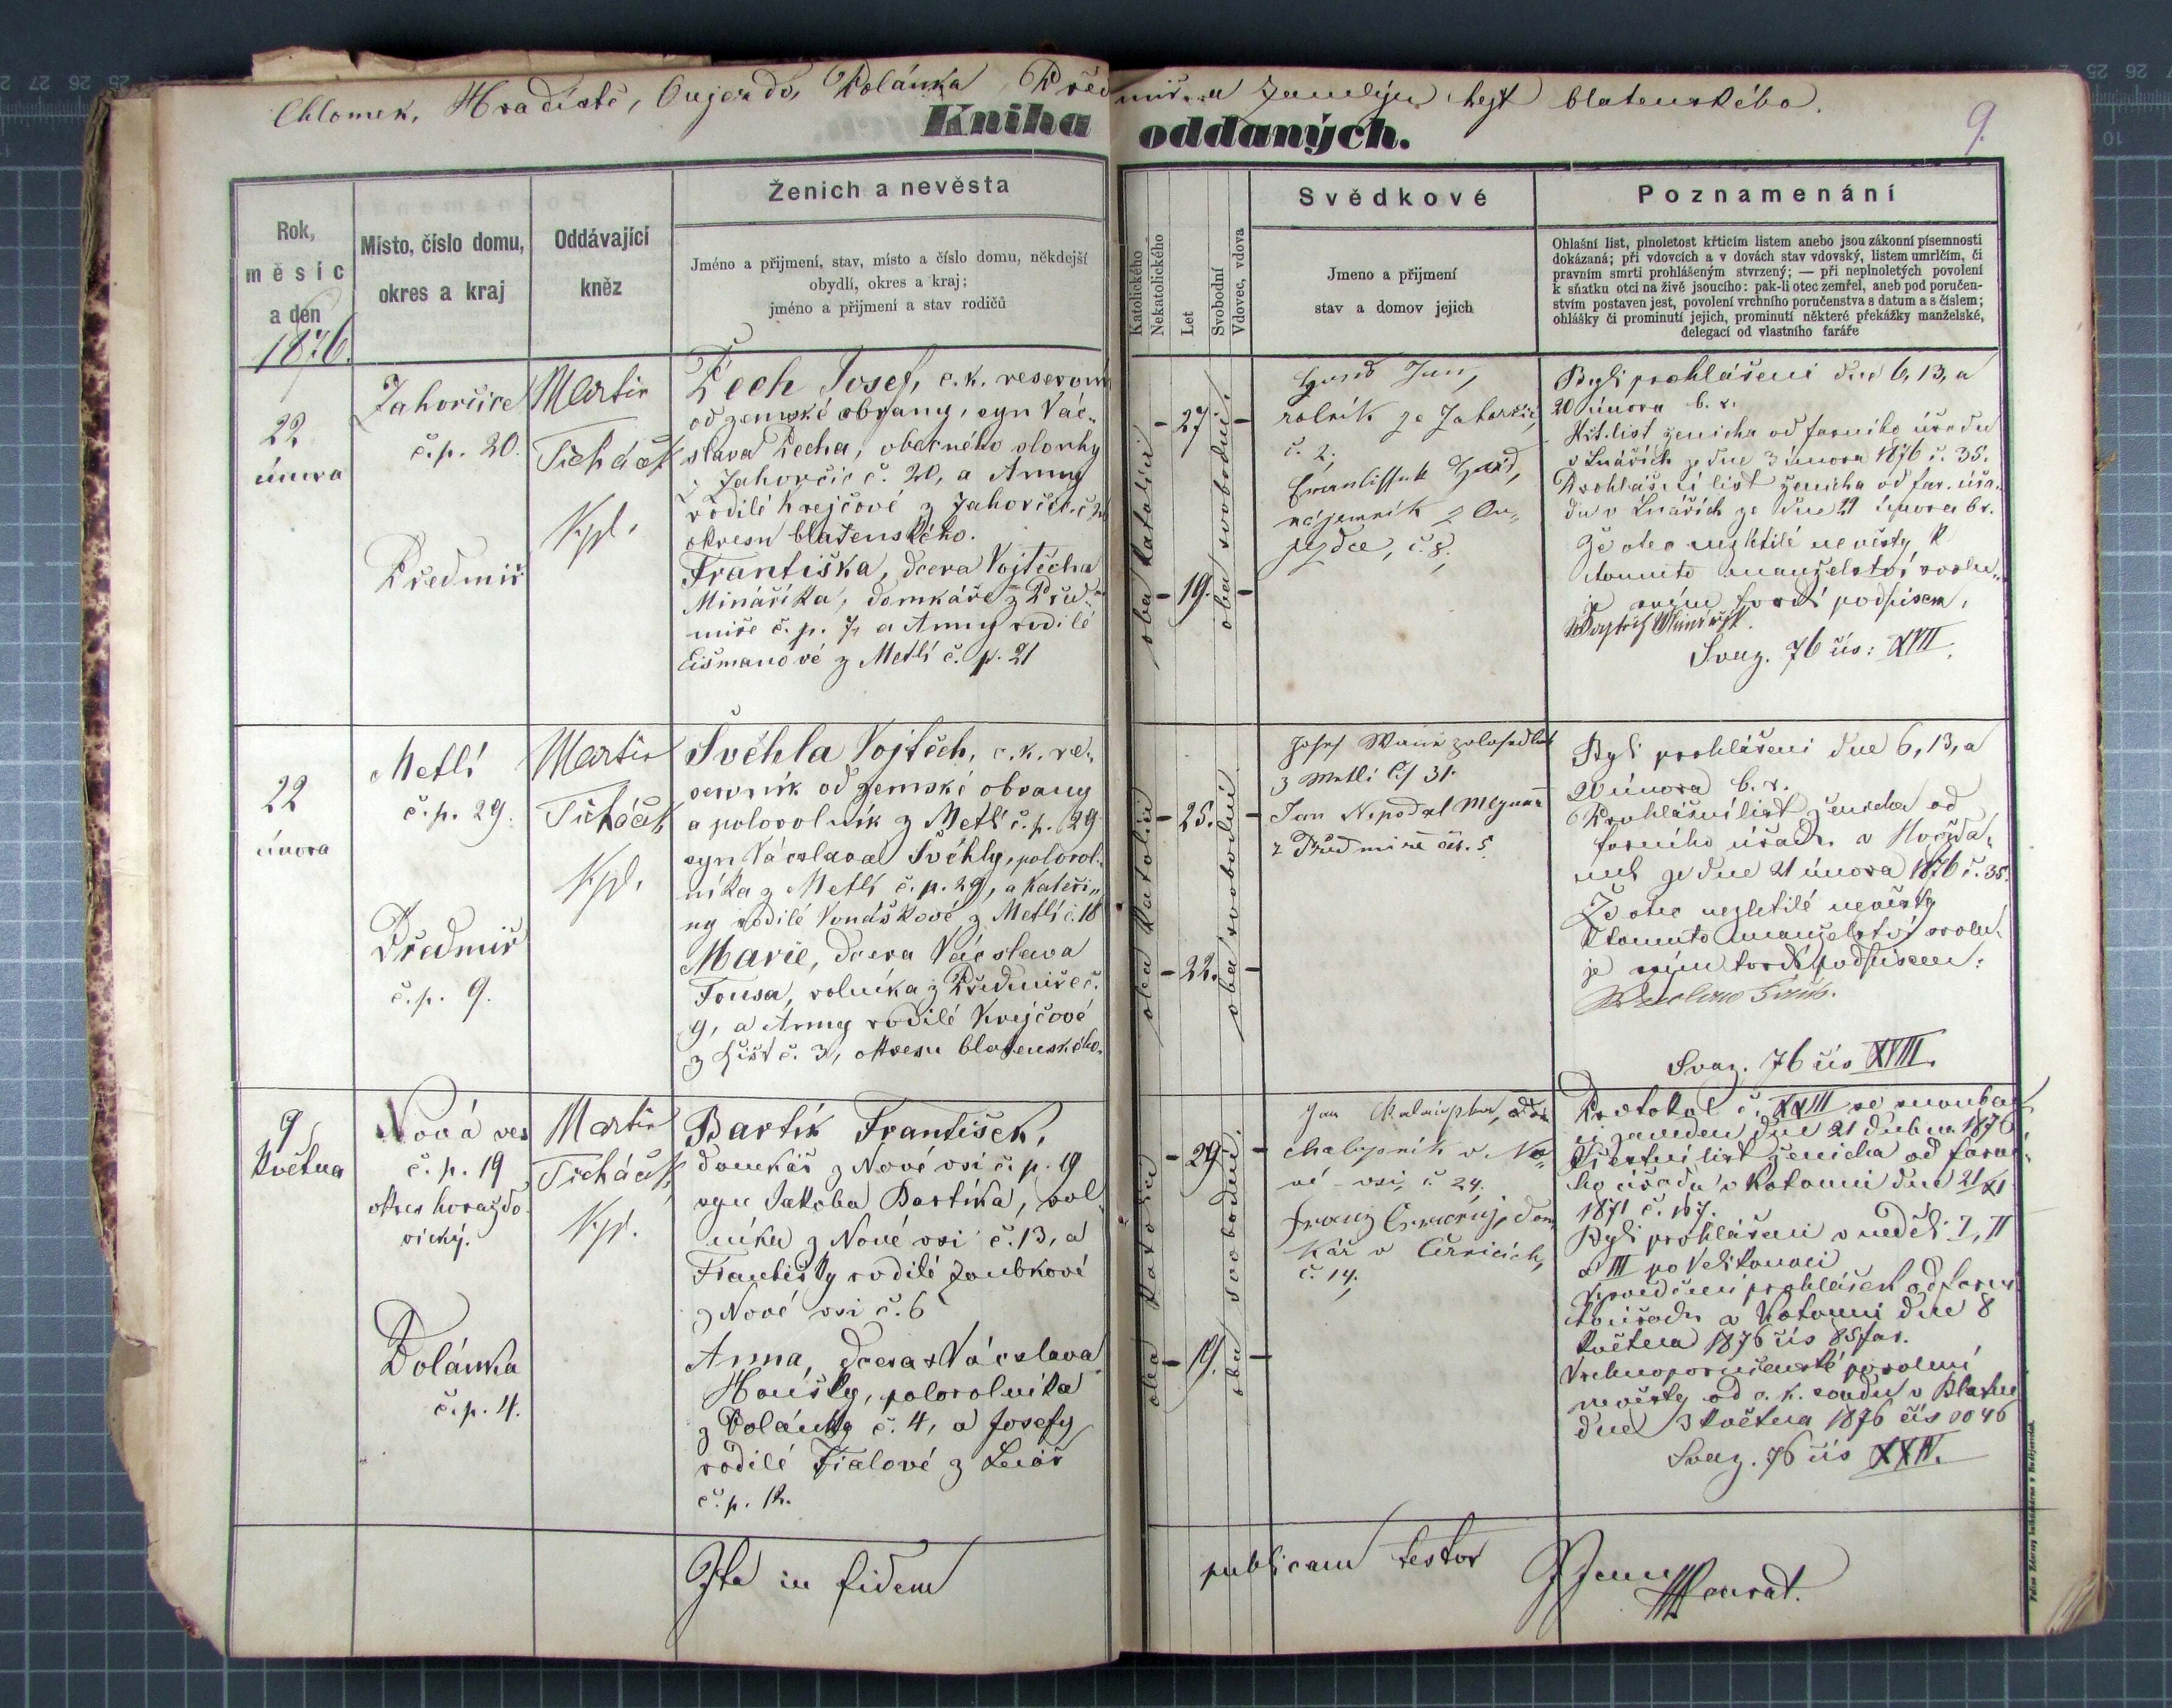 Chlomek, Hradiště, Oujezdo, Dolánka, Předmíř a Zamlýn hejt blatenského.
Kniha oddaných.
9.
Rok,
měsíc
a den
1876.
Místo, číslo domu,
okres a kraj
Oddávající
kněz
Ženich a nevěsta
Jméno a přijmení, stav, místo a číslo domu, někdejší
obydlí, okres a kraj;
jméno a přijmení a stav rodičů
Katolického
Nekatolického
Let
Svobodní
Vdovec, vdova
Svědkové
Jmeno a přijmení
stav a domov jejich
Poznamenání
Ohlašní list, plnoletost křticím listem anebo jsou zákonní písemnosti
dokázaná; při vdovcích a v dovách stav vdovský, listem umrlčím, či
pravním smrti prohlášeným stvrzený; — při neplnoletých povolení
k sňatku otci na živě jsoucího: pak-li otec zemřel, aneb pod poručen-
stvím postaven jest, povolení vrchního poručenstva s datum a s číslem;
ohlášky či prominutí jejich, prominutí některé překážky manželské,
delegací od vlastního faráře
22
února
Zahorčice
č.p. 20.
Předmíř
Martin
Ticháček
Kpl.
Čech Josef, c.k. reservník
od zemské obrany, syn Vác-
slava Čecha, obecného slouhy
z Zahorčic č. 20, a Anny
rodilé Krejčové z Zahorčic č
okresu blatenského.
Františka, dcera Vojtěcha
Mináříka, domkáře z Před-
míře č. p. 7, a Anny rodilé
Eišmanové z Metlí č. p. 21
oba katolíci
27
19.
oba svobodni.
Jan,
rolník ze Zahorčic,
č. 2,
nájemník z Ou-
jezdce, č. 8,
Byli prohlášeni dne 6, 13, a
20 února b. r.
Křt. list ženicha od farního úřadu
v Lnářích ze dne 3 února 1876 č. 35.
Prohlášní list ženicha od far. úřa-
du v Lnářích ze dne 21 února b r.
Že otec nezletilé nevěsty k
tomuto manželství svolu-
je svým tvrdí podpisem,
Svaz. 76 čís: XVII.
22
února
Metlí
č. p. 29.
Předmíř
č. p. 9.
Martin
Ticháček
Kpl.
Švehla Vojtěch, c. k. re-
servník od zemské obrany
a polorolník z Metlí č. p. 29
syn Vácslava Švehly, polorol-
níka z Metlí č. p. 29, a Kateři-
ny rodilé Vonáškové z Metlí č. 18
Marie, dcera Vácslava
Fousa, rolníka z Předmíře č.
9, a Anny rodilé Krejčové
z Lišt č. 3, okresu blatenského.
oba katolíci
25.
22.
oba svobodni.
Josef
z Metli č/ 31.
Jan Nepodal Mlynař
z Předmíře čís. 5.
Byli prohlášeni dne 6, 13, a
20 února b. r.
Prohlášní list ženicha od
farního úřadu v
ze dne 21 února 1876 č. 35.
Že otec nezletilé nevěsty
k tomuto manželství svolu-
je svým tvrdí podpisem:
Svaz. 76 čís XVIII.
9
Května
Nová ves
č. p. 19
okres horažďo-
vický.
Dolánka
č. p. 4.
Martin
Ticháček,
Kpl.
Bartík František,
domkář z Nové vsi č. p. 19
syn Jakoba Bartíka, rol-
níka z Nové vsi č. 13, a
Františky rodilé Zoubkové
z Nové vsi č. 6
Anna, dcera + Vácslava
Houšky, polorolníka
z Dolánky č. 4, a Josefy
rodilé Fialové z Lnář
č. p. 12.
oba katolíci
29
19.
oba svobodni.
Jan
chalupník v No-
vé vsi, č. 24.
Franz Černý, dom
kář v Černicích,
č. 14.
Protokol č. XXIII se snouben-
ci zaveden dne 21 dubna 1876
Křestní list ženicha od farní-
ho úřadu v Kotouni dne 21/XI
1871 č. 167.
Byli prohlášeni v neděli I, II
a III po Velikonoci
prohlášek od farní-
ho úřadu v Kotouni dne 8
května 1876 čís 85 far.
Vrchnoporučenské povolení
nevěsty od c. k. soudu v Blatné
dne 3 května 1876 čís
Svaz. 76 čís XXIV.
Ita in fidem publicam testor